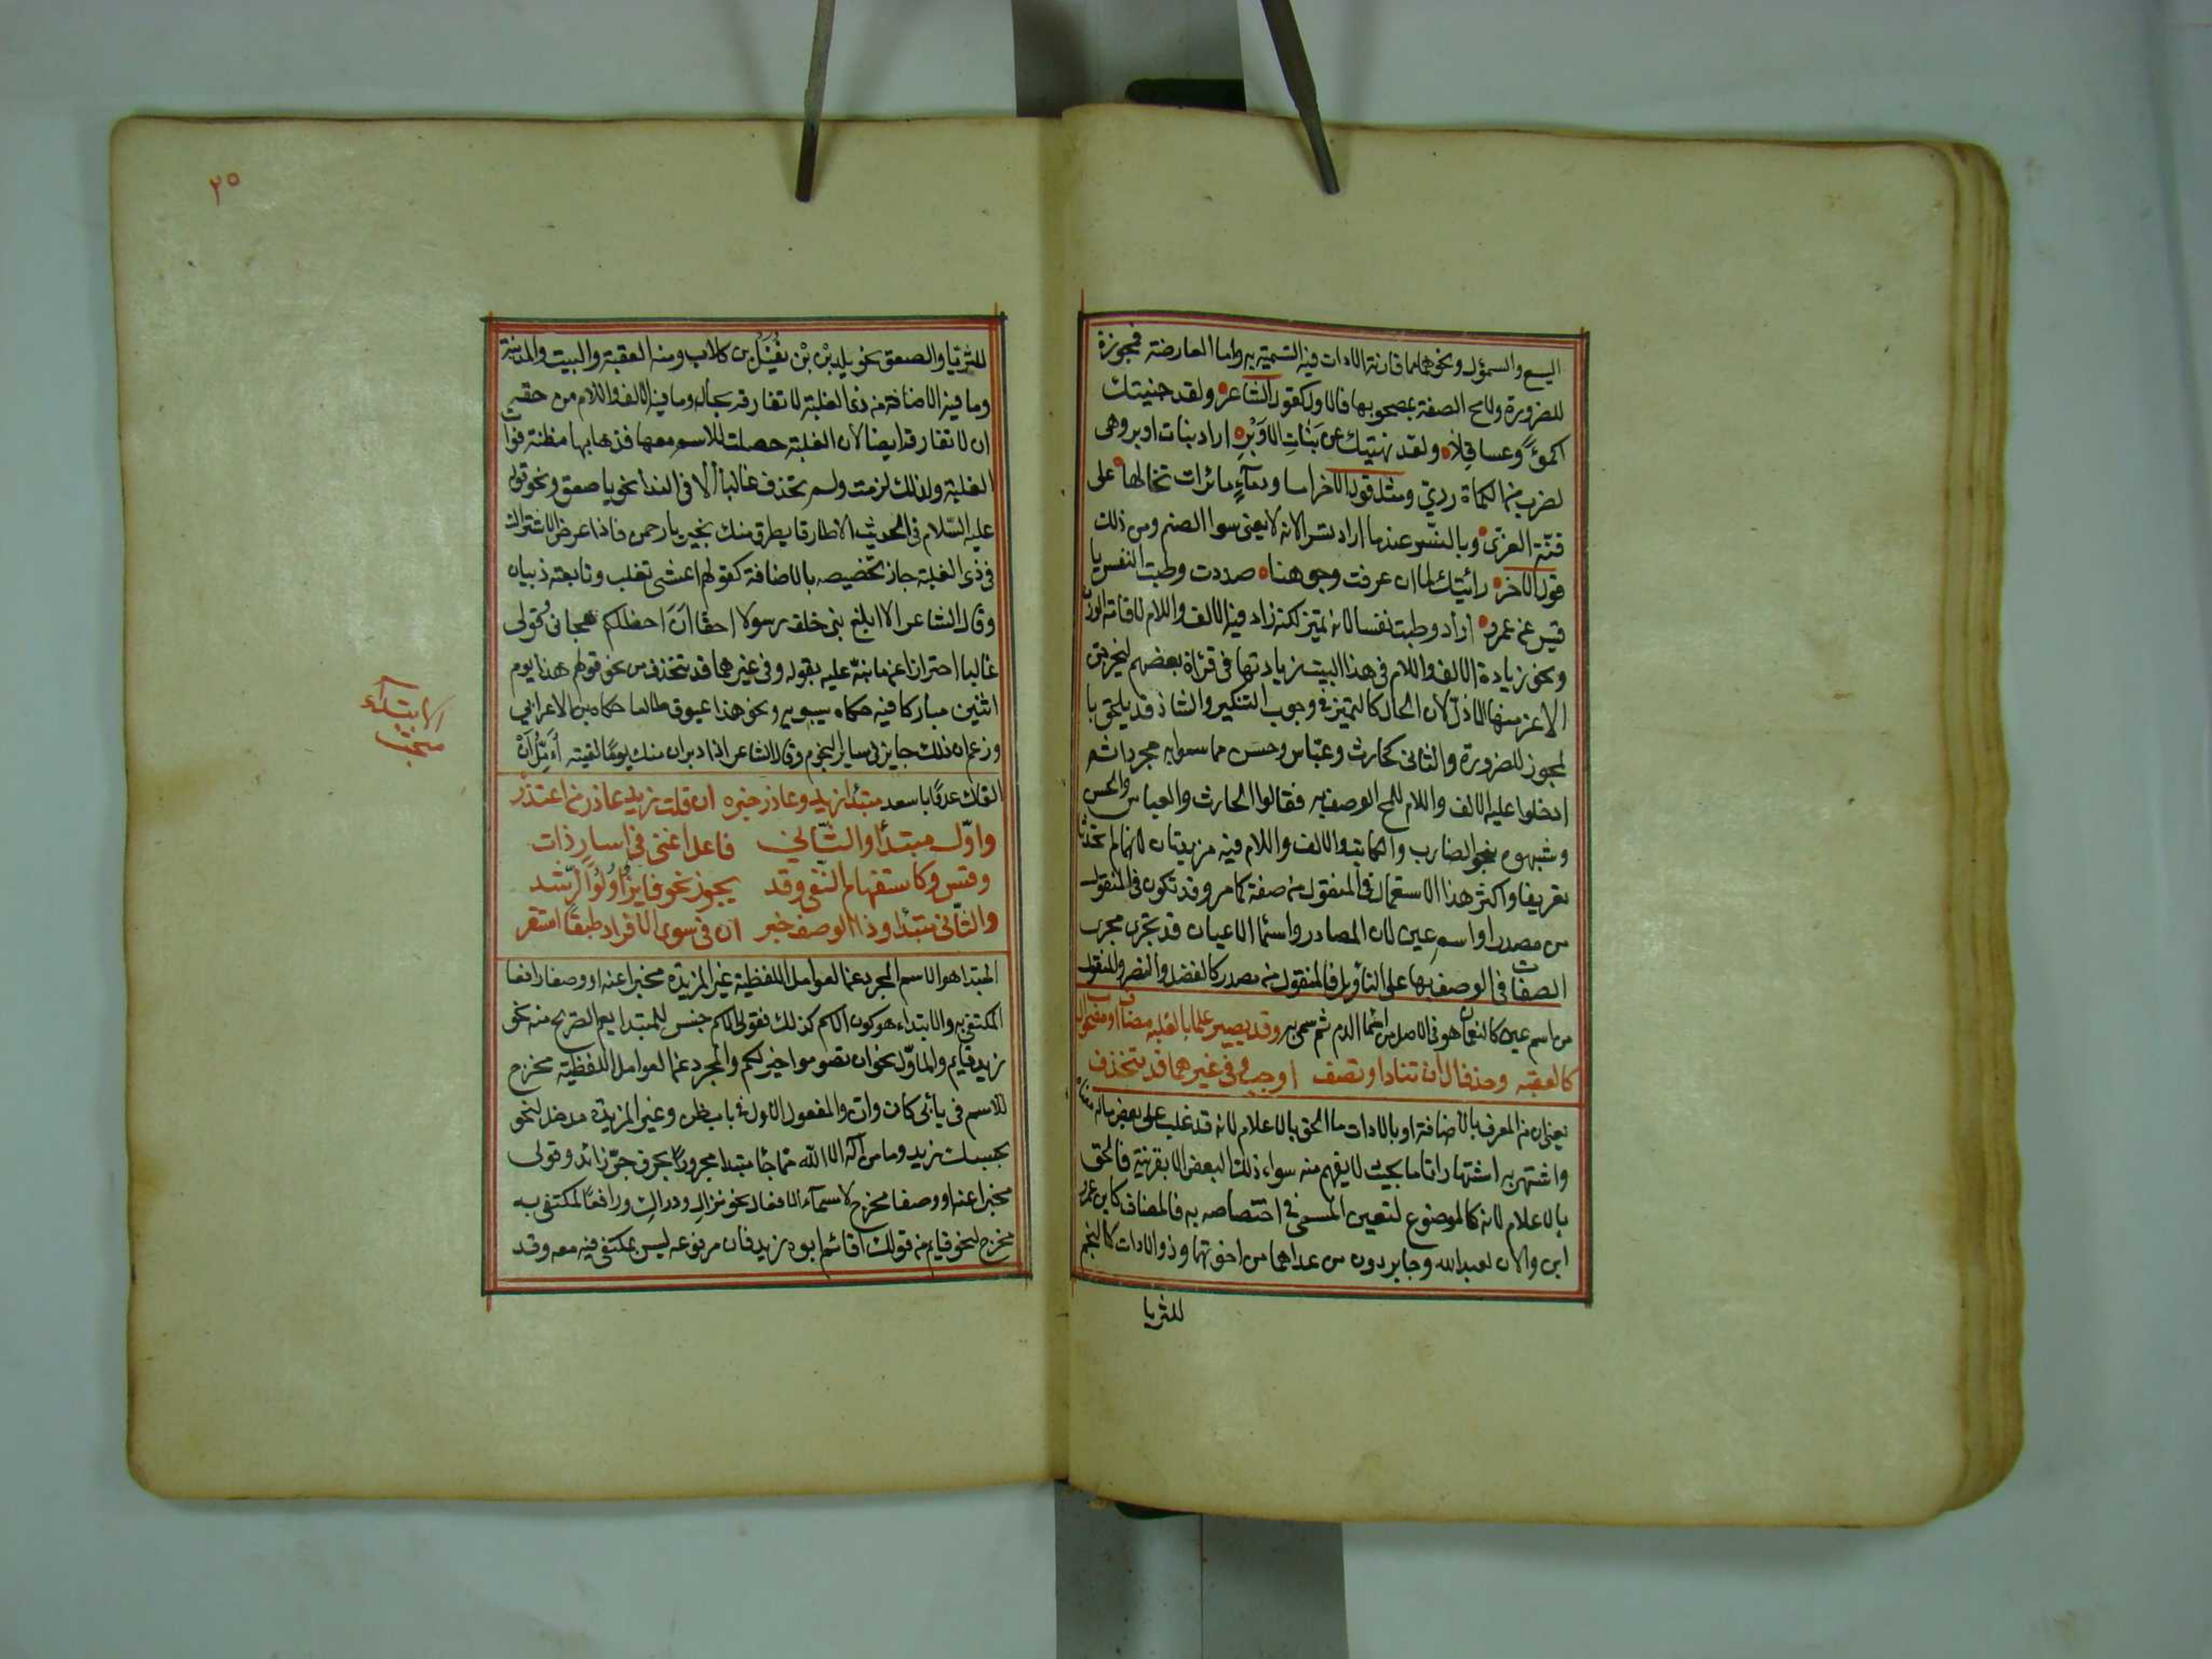 اليسع والسمؤل ونحوهما مما قارنت الادات فيه التسمية به واما العارضة فمجوزة
للضرورة ولامح الصفة بمصحوبها فالاول كقول الشاعر ولقد جنيتك
اكمؤًا وعساقلا ولقد نهيتك عن بَنَاتِ الاَوْبَرِ اراد بنات اوبر وهى
لضرب من الكماة ردئ ومثله قول الاخر اما ودمآءٍ مائرات تخالها على
قنّة العزى وبالنسر عندما اراد نسر الانه لايعنى سوا الصنم ومن ذلك
قول الاخر رائيتك لما ان عرفت وجوهنا صددت وطبت النفس يا
قيس عن عمرو اراد وطبت نفسا لانه تميز لكنه زاد فيه الالف واللام لاقامة الوزن
ونحو زيادة الالف واللام فى هذا البيت زيادتها فى قرٱة بعضهم ليخرجن
الاعز منها الاذلّ لان الحال كالتميز فى وجوب التنكير والشاذ قد يلحق با
لمجوز للضرورة والثانى كحارث وعبّاس وحسن مما سموا به مجردا ثم
ادخلوا عليه الالف واللام للمح الوصف به فقالوا الحارث والعباس والحسن
وشبهوه بنحو الضارب والكاتب والالف واللام فيه مزيدتان لانهما لم تحدثا
تعريفا واكثر هذا الاستعمال فى المنقول من صفة كما مر وقد تكون فى المنقول
من مصدر او اسم عين لان المصادر واسما الاعيان قد تجرى مجرى
الصفات فى الوصف بها على التأويل فالمنقول من مصدر كالفضل والنصر والمنقول
من اسم عين كالنعمان هو فى الاصل من اسما الدم ثم سمى به وقد يصير علما بالغلبه مضاف او مصحوب ال
كالعقبه وحذف ال ان تنادا او تضف اوجب وفى غيرهما قد تنحذف
يعنى ان من المعرف بالاضافة او بالادات ما الحق بالاعلام لانه قد غلب على بعض ماله معناه
واشتهر به اشتهارا تاما بحيث لا يفهم منه سواء ذلك البعض الا بقرينة فالحق
بالاعلام لانه كالموضوع لتعيين المسمى فى اختصاصه به فالمضاف كابن عمر
ابن والان لعبد الله وجابر دون من عداهما من اخوتهما وذو الادات كالنجم
للثريا
٢٥
للثريّا والصعق بخويلد بْن بْن نُفَيْل بن كلاب ومنه العقبة والبيت والمدينة
وما فيه الاضافة من ذى الغلبة لا تفارقه بحال وما فيه الالف واللام من حقه
ان لا تفارقه ايضا لان الغلبة حصلت للاسم معها فذهابها مظنة فوات
الغلبة ولذلك لزمت ولم تحذف غالبا الا فى الندا نحو يا صعق ونحو قوله
عليه السّلام فى الحديث الا طارقا يطرق منك بخير يا رحمن فاذا عرض الاشتراك
فى ذى الغلبة جاز تخصيصه بالاضافة كقولهم اعشى تغلب ونابغة ذبيان
وقال الشاعر الا ابلغ بنى خلف رسولا احقًا اَنَ اخطلكم هجانى وقولى
غالبا احترازا عما نبّه عليه بقوله وفى غيرهما قد تنحذف من نحو قولهم هذا يوم
اثنين مباركا فيه حكاه سيبويه ونحو هذا عيوق طالعا حكاه بن الاعرابي
وزعم ان ذلك جايز فى ساير النجوم وقال الشاعر اذا دبران منك يومًا لقيته اُءَمِّلُ اَنْ
القاك غدوًا باسعد مبتدٱ زيد وعاذر خبره ان قلت زيد عاذر من اعتذر
واوّل مبتدأ والثّاني فاعل اغنى فى اسارٍ ذات
وقيس وكاستفهام النّفى وقد يجوز نحو فايزٌ اُولُوا الرّشد
والثّانى مبتدأ وذا الوصف خبر ان فى سوى الافراد طبقًا استقر
المبتدا هو الاسم المجرد عن العوامل اللفظية غير المزيدة مخبرا عنه او وصفا رافعا
لمكتفى به والابتداء هو كون الاسم كذلك فقولى الاسم جنس للمبتدا يعم الصريح منه نحو
زيد قايم والماوّل نحو ان تصوموا خير لكم والمجرد عن العوامل اللفظية مخرج
للاسم فى بأبى كان وان والمفعول الاول فى باب ظن وغير المزيدة مدخل لنحو
بحسبك زيد وما من اله الا اللّه مما جا مبتدا مجرورًا بحرف جرّ زائد وقولى
مخبرا عنه او وصفا مخرج لاسمآء الافعال نحو نزالِ ودراكِ ورافعًا لمكتفى به
مخرج لنحو قايم من قولك اقائم ابوه زيد فان مرفوعه ليس بمكتفى فيه معه وقد
الابتداء
مبحث